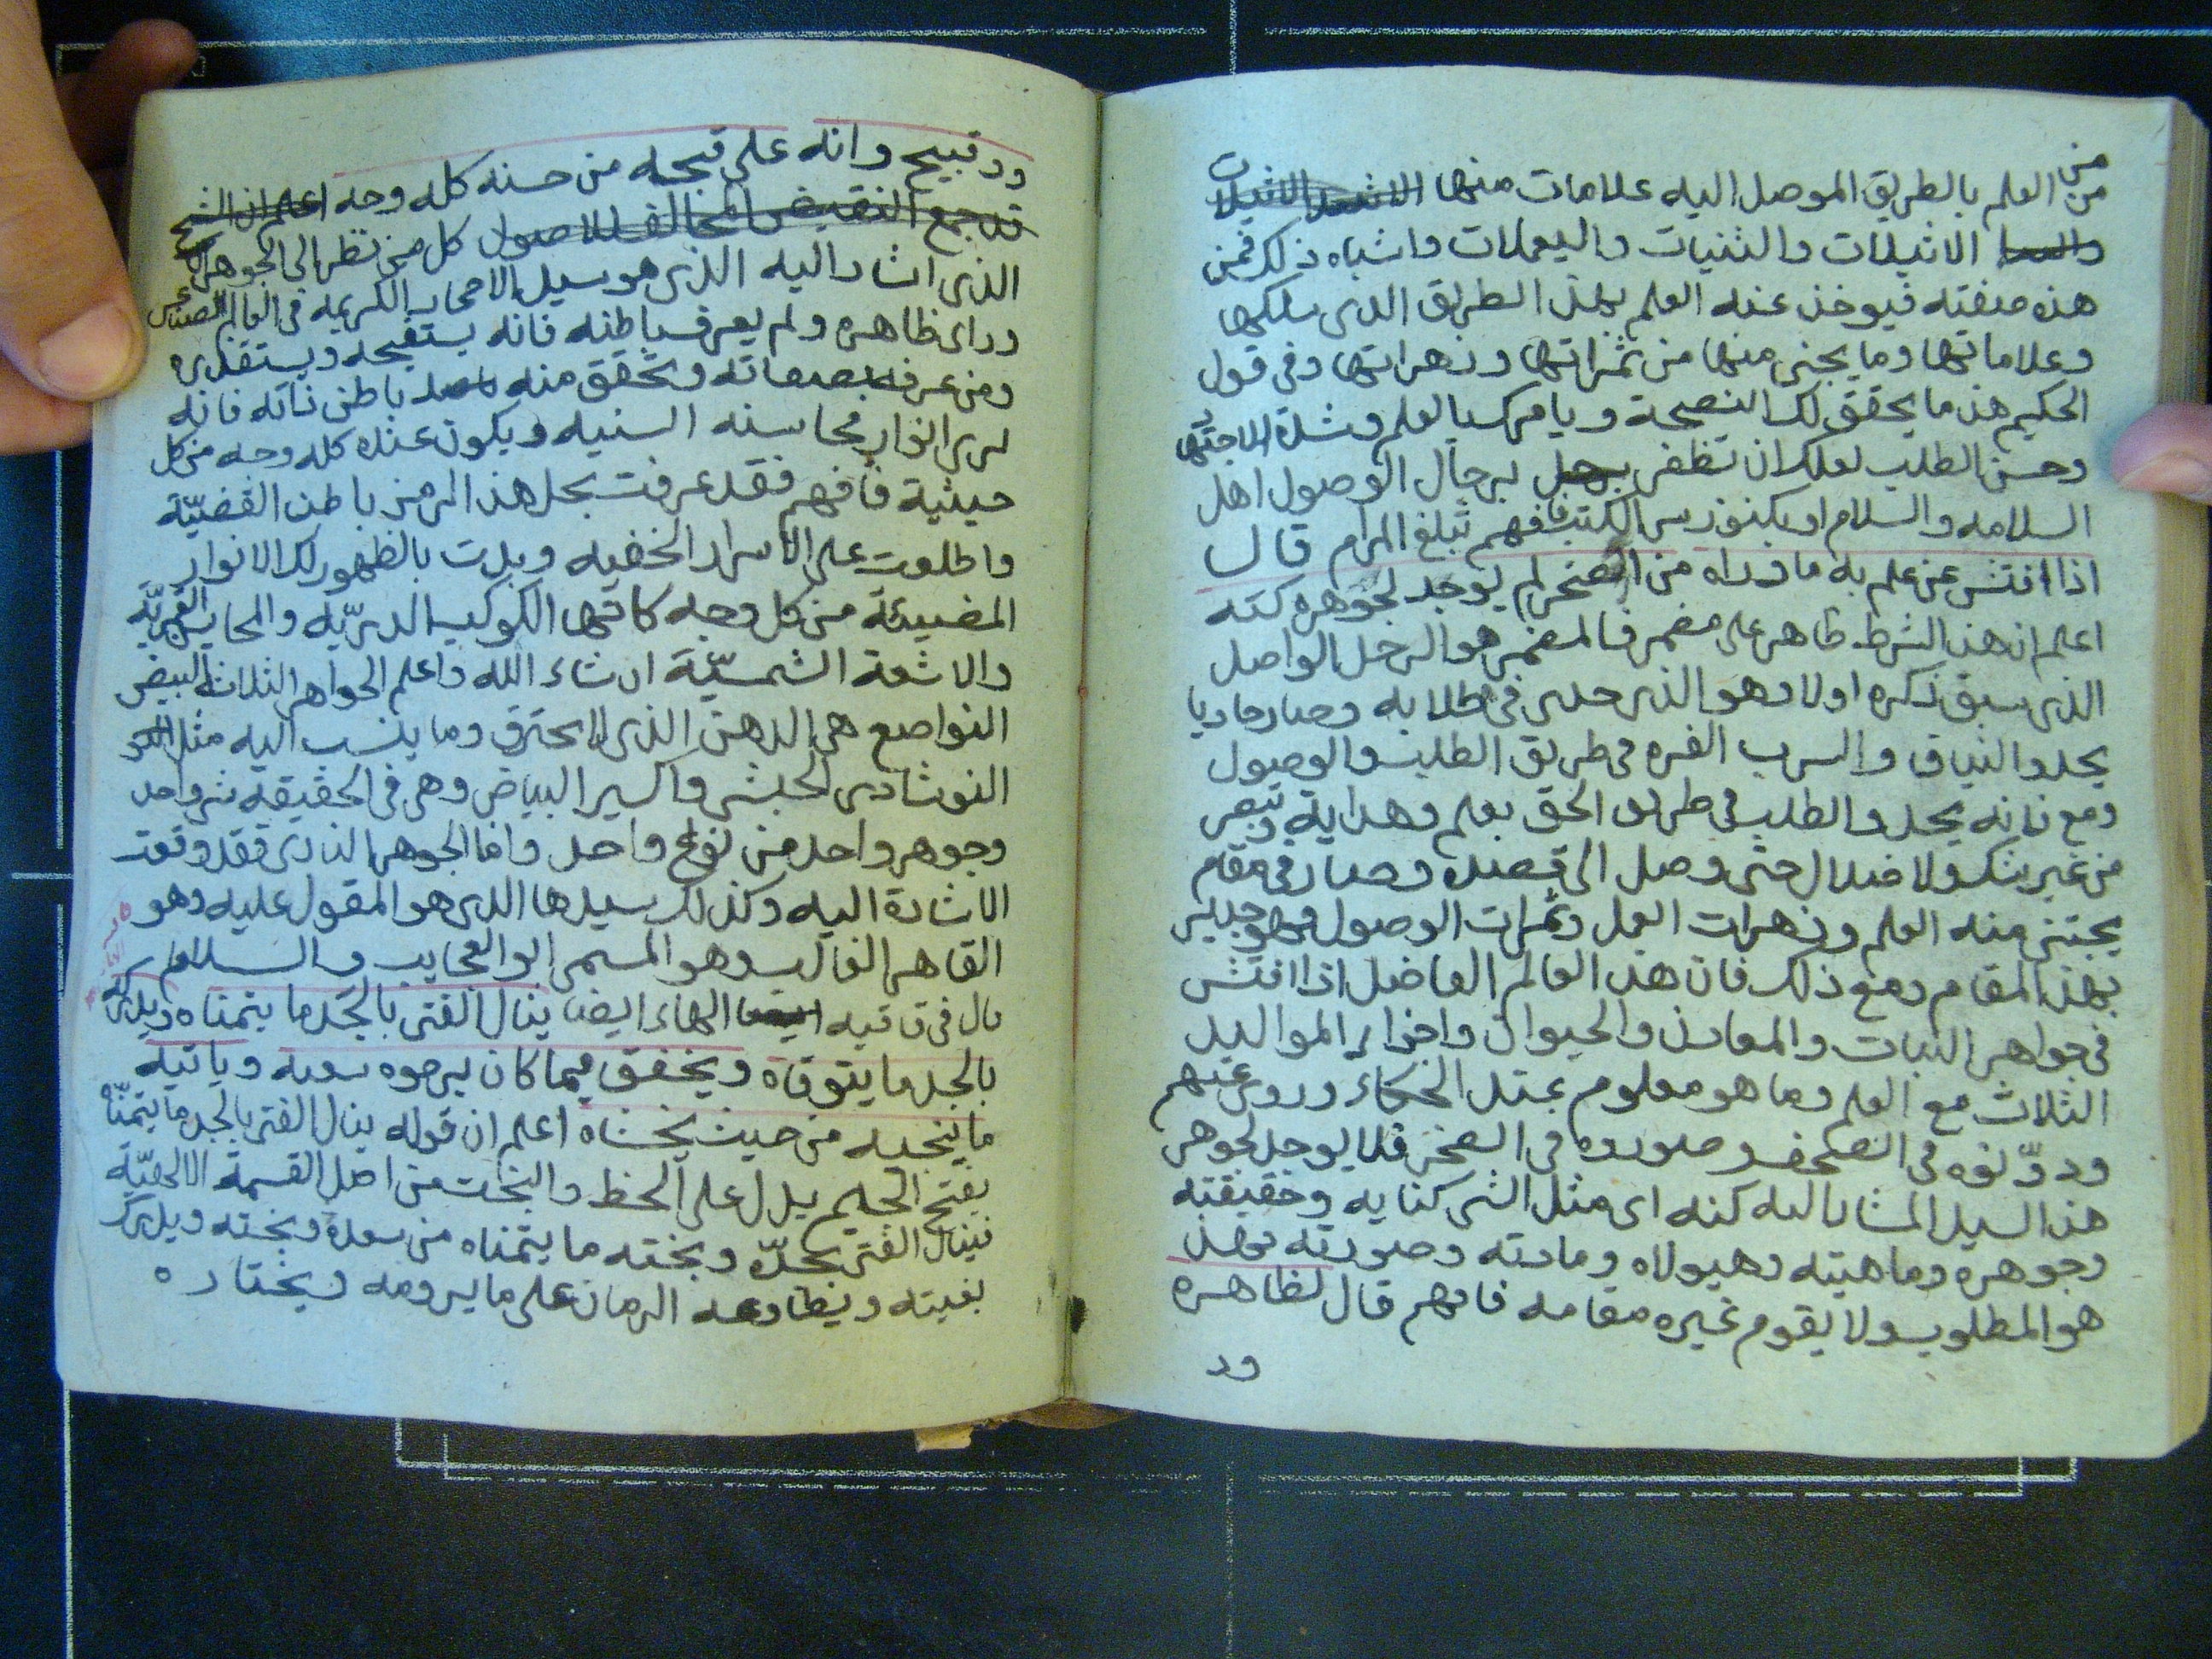 من
من العلم بالطريق الموصل اليه علامات منها
الاثيلات والثنيات واليعملات واشباه ذلك فمن
هذه صفته فيوخذ عنه العلم بهذا الطريق الذى سلكها
وعلاماتها وما يجنى منها من ثمراتها وزهراتها وفى قول
الحكيم هذا ما يحقق لك النصيحة ويامرك بالعلم وشدة الاجتهاد
وحسن الطلب لعلك ان تظفر برجال الوصول اهل
السلامه والسلام او بكنوز من الكتب فافهم تبلغ المرام قال
اذا افتش عن علم به ما وراه من الصخر لم يوجد لجوهره كنه
اعلم ان هذا الشرط ظاهر على مضمر فالمضمر هو الرجل الواصل
الذى سبق ذكره اولا وهو الذى فى طلابه وصار حاديا
يحدوا النياق والسرب الفره فى طريق الطلب والوصول
ومع فانه يحدوا لطلب فى طريق الحق بعلم وهداية وتبصر
من غير شك ولا ضلال حتى وصل الى قصده وصار فى مقام
يجتنى منه العلم وزهرات العمل وثمرات الوصول فهو جدير
بهذا المقام ومع ذلك فان هذا العالم الفاضل اذا افتش
فى جواهر النبات والمعادن والحيوان واجزاء المواليد
الثلاث مع العلم وما هو معلوم عند الحكماء وروى عنهم
ودوّنوه فى الصحف وصوروه فى الصخر فلا يوجد لجوهر
هذا السيد المشار اليه كنه اى مثل الشى كنايه وحقيقته
وجوهره وماهيته وهيولاه ومادته وصورته فهذا
هو المطلوب ولا يقوم غيره مقامه فافهم قال لظاهره
ود
ود قبيح وانه على قبحه من حسنه كله وجه اعلم ان الشيخ
قد جمع النقيض المخالف للاصول كل من نظر الى الجوهر
الذى اشار اليه الذى هو سيد الاحجار الكريمه فى العالم الصناعى
وراى ظاهره ولم يعرف باطنه فانه يستقبحه ويستقذره
ومن عرف صفاته وتحقق منه باطن ذاته فانه
يرى انوار محاسنه السنيه ويكون عنده كله وجه من كل
حيثية فافهم فقد عرفت بحل هذا الرمز باطن القضيّة
واطلعت على الاسرار الخفيه وبدت بالظهور لك الانوار
المضيئة من كل وجه كانها الكوكب الدريّه والمحاسن القمريّه
والاشعة الشمسيّة ان شاء الله واعلم الجواهر الثلاثة البيض
النواصع هى الدهن الذى لا يحترق وما ينسب اليه مثل
النوشادر الحبشى واكسير البياض وهى فى الحقيقه شى واحد
وجوهر واحد من نوع واحد واما الجوهر النارى فقد وقعت
الاشارة اليه وكذلك سيدها الذى هو المقول عليه وهو
القاهر الغالب وهو المسمى ابو العجايب والسلام
قال فى قافيه الهاء ايضا ينال الفتى بالجَد ما يتمناه ويدرك
بالجد ما يتوقاه ويخفق فيما كان يرجوه سعيه وياتيه
ما ينجيه من حيث يخشاه اعلم ان قوله ينال الفتى بالجد ما يتمنّاه
بفتح الجيم يدل على الحظ والبخت من اصل القسمة الالهيّة
فينال الفتى بجدّه وبخته ما يتمناه من سعده وبخته ويدرك
بغيته ويطاوعه الزمان على ما يرومه ويختاره